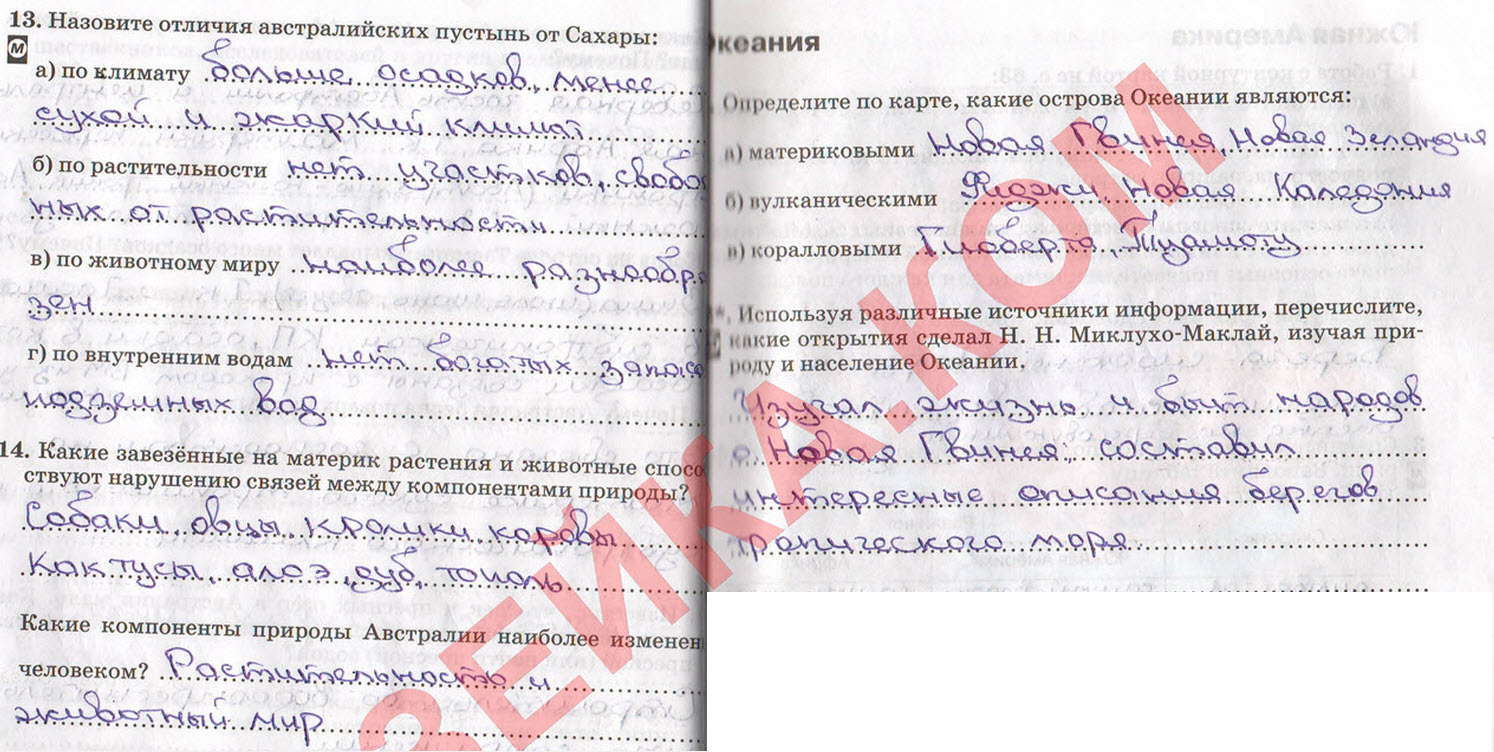 13. Назовите отличия австралийских пустынь от Сахары:
М
а) по климату больше осадков, менее
сухой и жаркий климат
б) по растительности нет участков, свобо
ных от растительности
в) по животному миру наиболее разнообра
зен
г) по внутренним водам нет богатых запасо
подземных вод
14. Какие завезённые на материк растения и животные спосо
ствуют нарушению связей между компонентами природы?
Собаки, овцы, кролики, коровы
Кактусы, алоэ, дуб, тополь
Какие компоненты природы Австралии наиболее изменен
человеком? Растительность и
животный мир
Океания
Определите по карте, какие острова Океании являются:
а) материковыми Новая Гвинея, Новая Зеландия
б) вулканическими Фиджи, Новая Каледония
в) коралловыми Гилберта, Туамоту
*. Используя различные источники информации, перечислите,
какие открытия сделал Н. Н. Миклухо-Маклай, изучая при-
роду и население Океании.
Изучал жизнь и быт народов
о. Новая Гвинея, составил
интересные описания берегов
тропического моря
ЗЕЙКА.КОМ